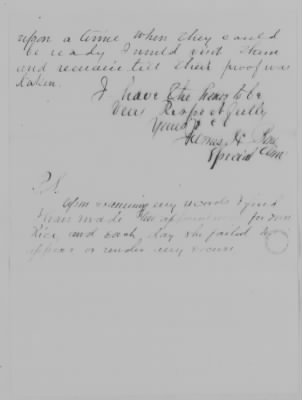 upon a time when they could
be ready I would visit them
and remain till their proof was
taken.
I have the honor to be
Very Respectfully
Yours &c
James H
Special Com
P.S.
Upon examining my records I find
I have made appointments for
Rice, and each day she failed to
appear or render any excuse